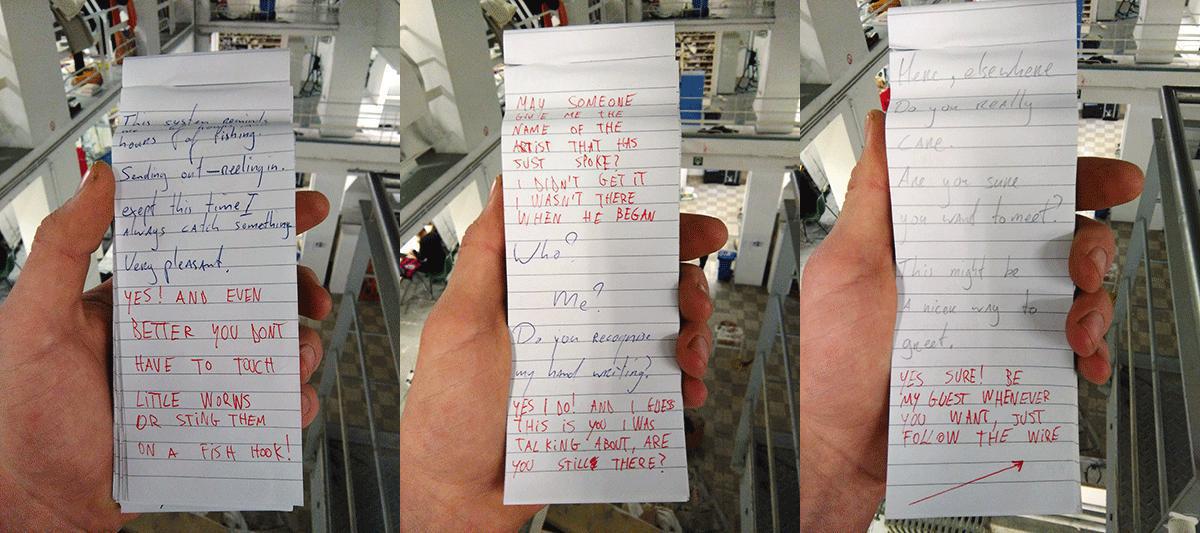 This system reminds
hours of fishing.
Sending out – reeling in.
exept this time I
always catch something
Very pleasant.
YES! AND EVEN
BETTER YOU DONT
HAVE TO TOUCH
LITTLE WORMS
OR STING THEM
ON A FISH HOOK!
MAY SOMEONE
GIVE ME THE
NAME OF THE
ARTIST THAT HAS
JUST SPOKE?
I DIDN'T GET IT
I WASN'T THERE
WHEN HE BEGAN
Who?
Me?
Do you recognise
my hand writing?
YES I DO! AND I GUESS
THIS IS YOU I WAS
TALKING ABOUT, ARE
YOU STILL THERE?
Here, elsewhere
Do you really
care.
Are you sure
you want to meet?
This might be
a nicer way to
greet.
YES SURE! BE
MY GUEST WHENEVER
YOU WANT, JUST
FOLLOW THE WIRE